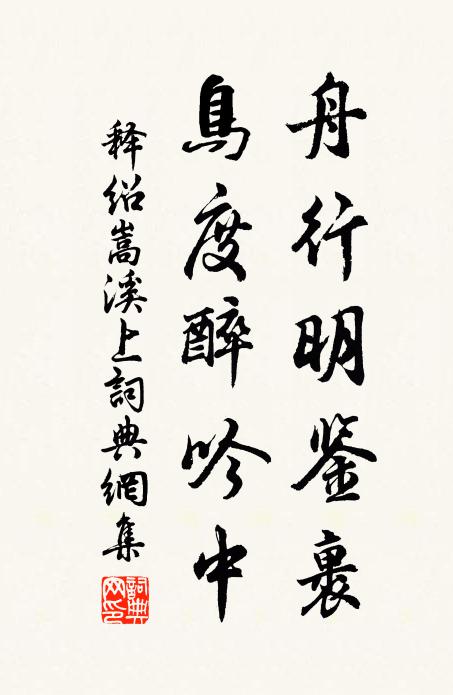 舟行明鉴裏
鳥度醉吟中
释绍嵩溪上詞典網集
詞典网印